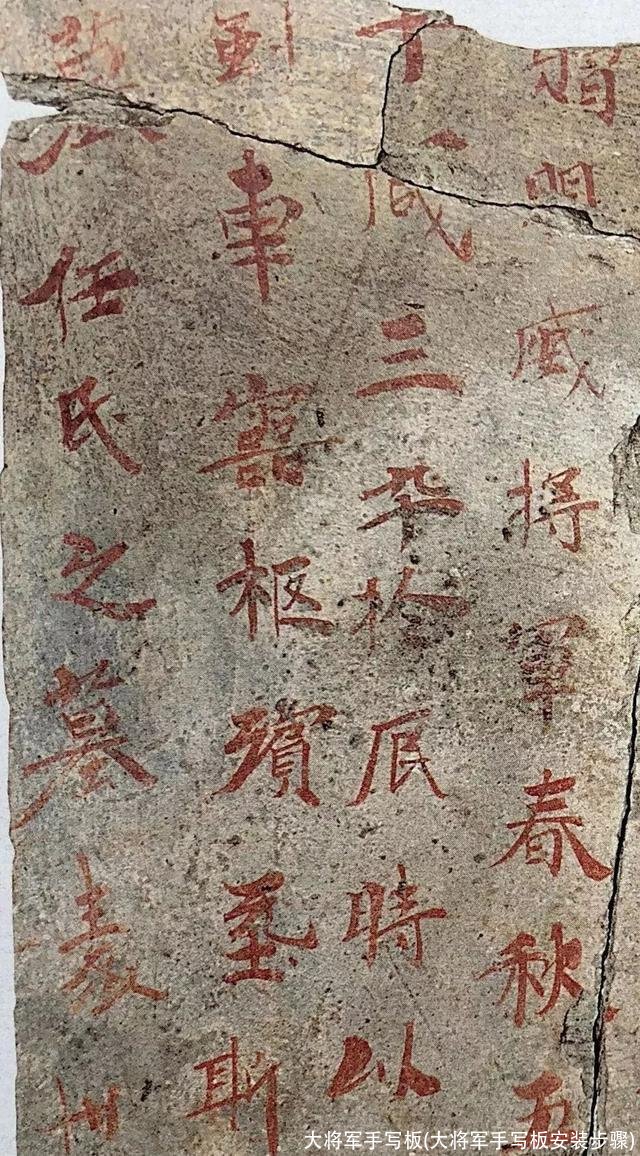 明威將軍春秋五
三卒於辰時以
車靈柩殯埊斯
任氏之墓表
大将军手写板(大将军手写板安装步骤)